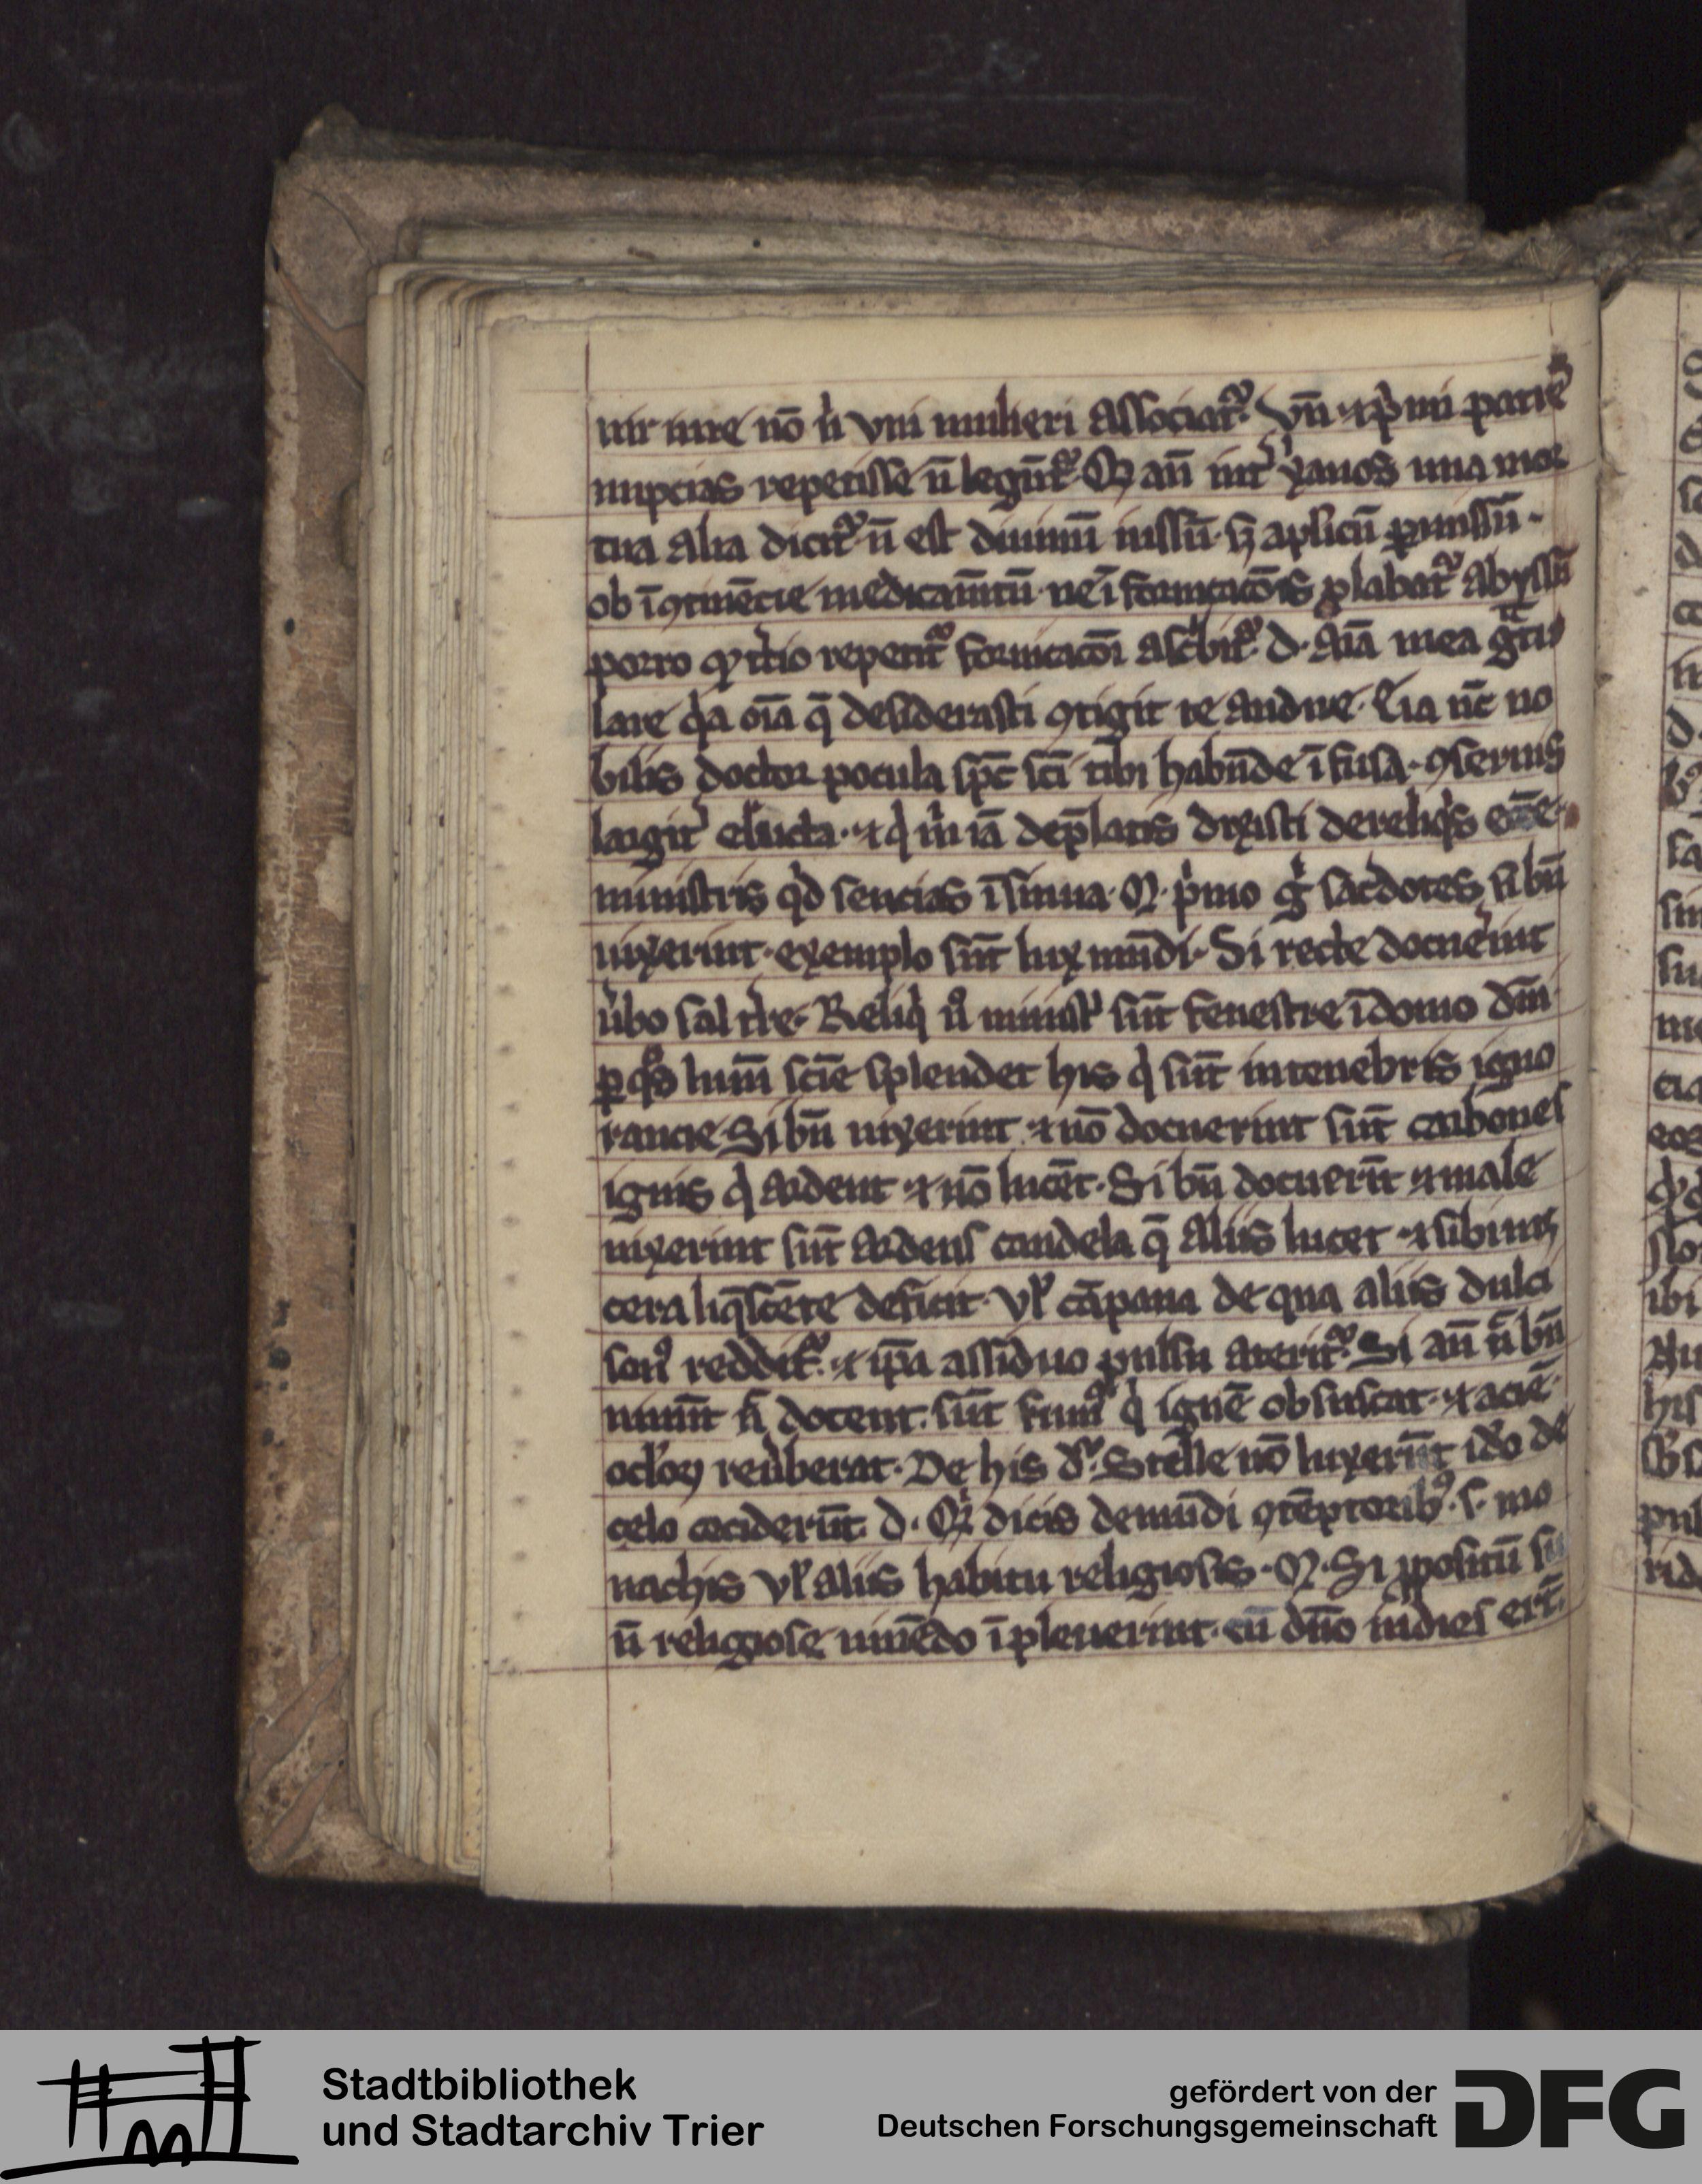 uir iure nō nͥ vni mulieri associatᷣ. Vn̄ ⁊ pͥmi patrē
nupcias repetisse n̄ legūtᷣ. Qꝫ aūt int̓ xp̄ianos una mor
tua alia dicitᷣ n̄ est diuinū iussū. sꝫ apl̓icū ꝑmissū.
ob īꝯtinēcie medicam̄tū. ne ī fornicacōis plabatᷣ abyssū
porro qͥ tͨio repetitᷣ fornicacōi asc̓bitᷣ. d. Aīa mea gͣtu
lare qͥa oīa q̄ desiderasti ꝯtigit te audire. Eia nc̄ no
bilis doctor pocula sp̄c sc̄i tibi habūde īfusa. ꝯseruis
largit̓ eructa. ⁊ qͥ m̄ iā de p̄latis dixisti de reliqͥs ecc̄e
ministris qͥd sencias īsinua. M. pͥmo gͦ sac̓dotes si bn̄
uixerint. exemplo sūt lux mūdi. Si recte docuerint
u̓bo sal tr̄re. Reliqͥ u̓o ministͥ sūt fenestre ī domo dn̄i
ꝑ qͦs lum̄ scīe splendet his qͥ sūt in tenebris igno
rancie. Si bn̄ uixerint ⁊ nō docuerint sūt carbones
ignis qͥ ardent ⁊ nō lucēt. Si bn̄ docuerīt ⁊ male
uixerint sūt ardens candela q̄ aliis lucet ⁊ sibimꝫ
cera liq̄scēte deficit. vl̓ cāpana de qua aliis dulci
sonꝰ redditᷣ. ⁊ ip̄a assiduo pulsu ateritᷣ. Si aūt n̄ bn̄
uiuūt n̄ docent. sūt fumꝰ qͥ ignē obfuscat. ⁊ aciē
ocl̓oꝝ reu̓berat. De his dᷣ. Stelle nō luxerūt ido̓ de
celo ceciderūt. d. Qͥd dicis de mūdi ꝯtēptoribꝰ. s. mo
nachis vl̓ aliis habitu religiosis. M. Si ꝓpositū su
ū religiose uiuēdo īpleuerint. cū dn̄o iudices erūt.
Stadtbibliothek
und Stadtarchiv Trier
gefördert von der
Deutschen Forschungsgemeinschaft
DFG